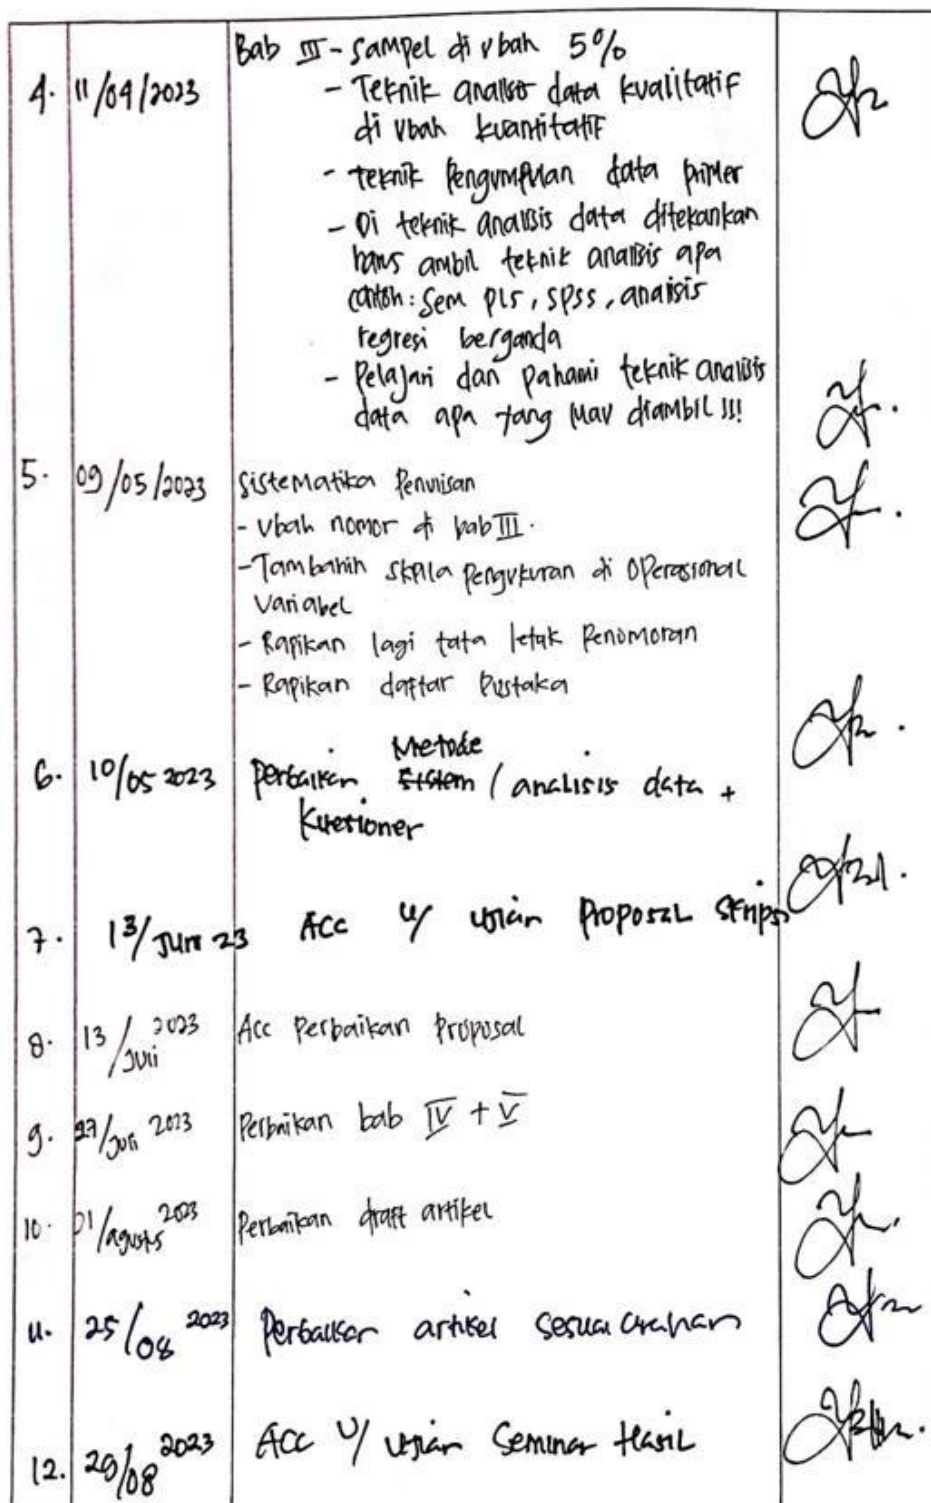 Bab III - Sampel di ubah 5%
4. 11/04/2023 - Teknik analisis data kualitatif
di ubah kuantitatif
- teknik Pengumpulan data primer
- Di teknik analisis data ditekankan
harus ambil teknik analisis apa
contoh: Sem pls, spss, analisis
regresi berganda
- Pelajari dan pahami teknik analisis
data apa yang mau diambil !!!
5. 09/05/2023 Sistematika Penulisan
- Ubah nomor di bab III.
- Tambahin skala pengukuran di Operasional
Variabel
- Rapikan lagi tata letak Penomoran
- Rapikan daftar Pustaka
Metode
6. 10/05 2023 Perbaikan sistem / analisis data +
Kuesioner
7. 13/Juni 23 ACC u/ ujian Proposal Skripsi
8. 13/Juli 2023 Acc Perbaikan Proposal
9. 27/Juli 2023 Perbaikan bab IV + V
10. 01/agustus 2023 Perbaikan draft artikel
11. 25/08 2023 Perbaikan artikel sesuai arahan
12. 29/08 2023 ACC u/ ujian Seminar Hasil